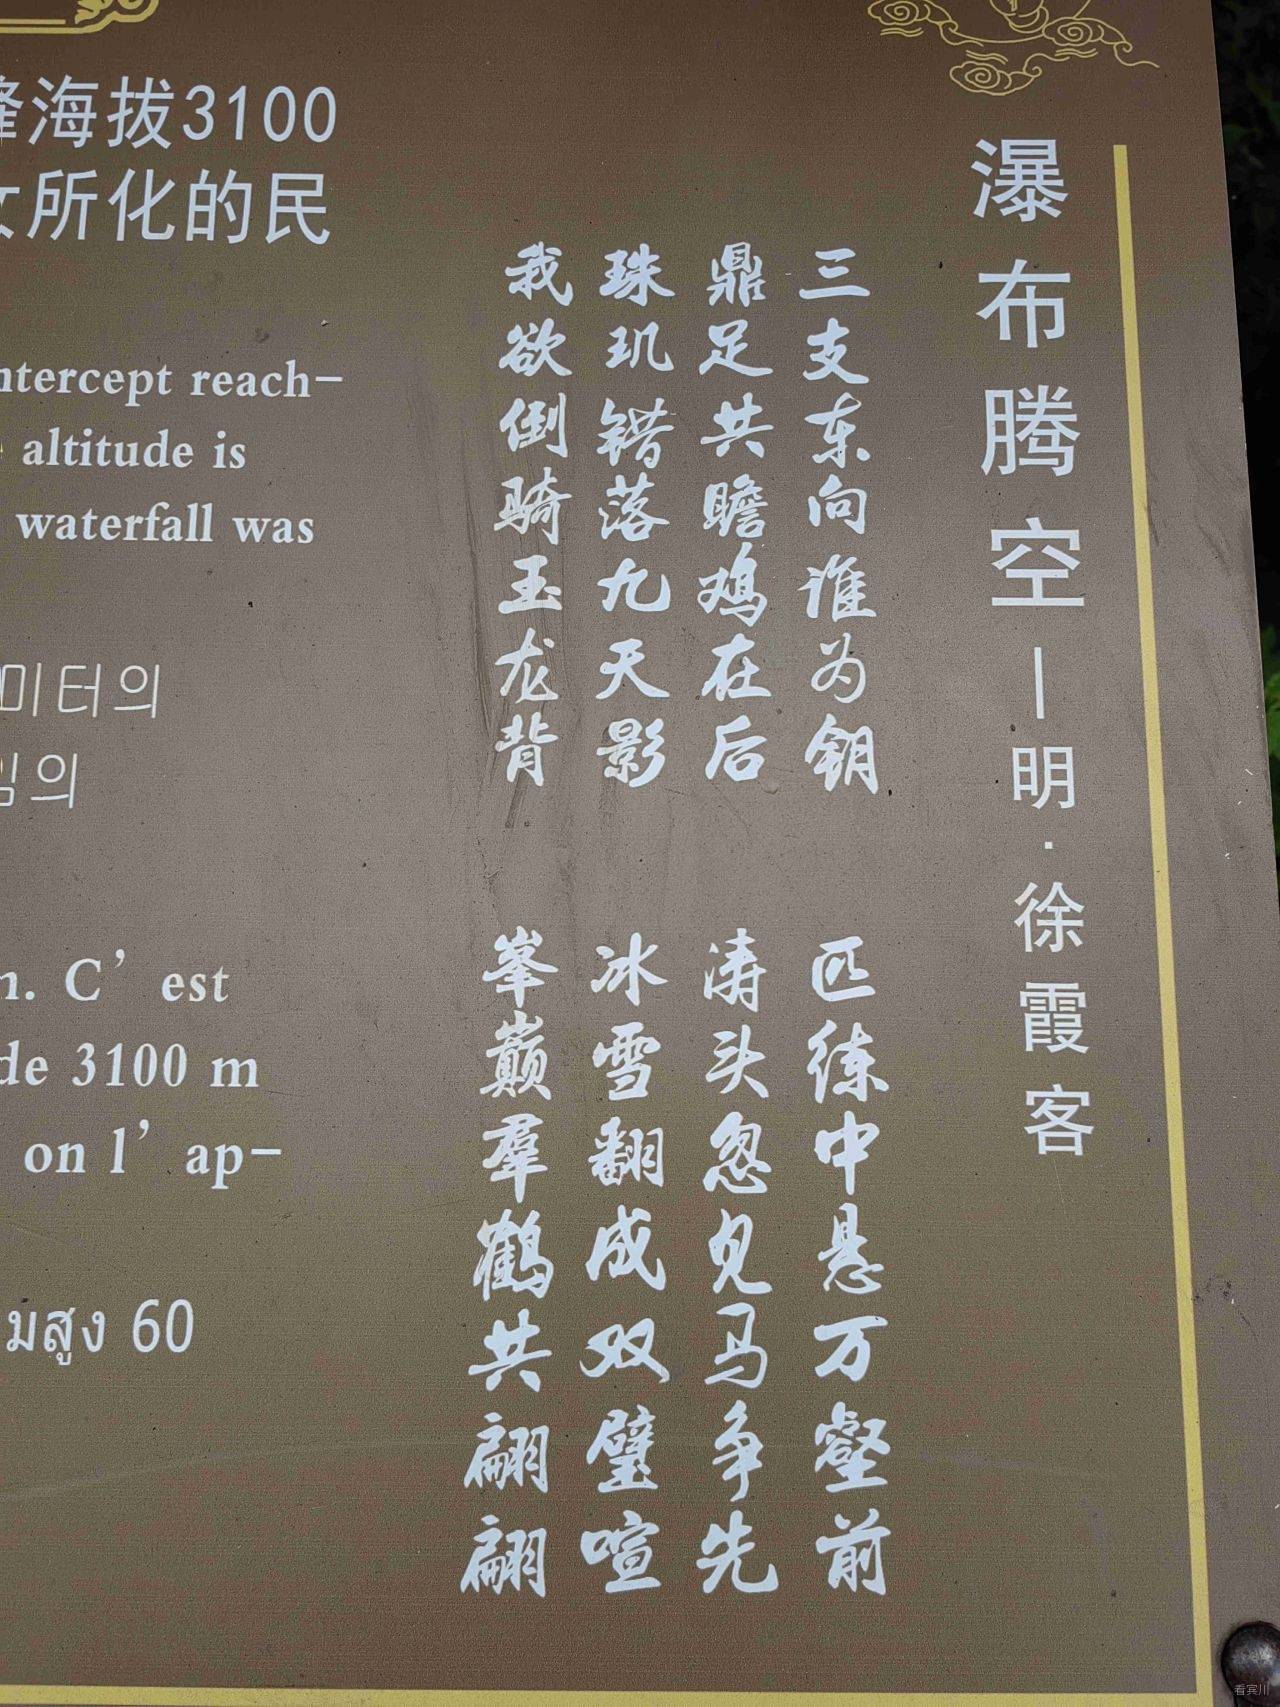 峰海拔3100
女所化的民
ntercept reach-
altitude is
waterfall was
미터의
임의
n. C'est
de 3100 m
on l'ap-
มสูง 60
瀑布腾空—明·徐霞客
三支东向谁为钥 匹练中悬万壑前
鼎足共瞻鸡在后 涛头忽见马争先
珠玑错落九天影 冰雪翻成双璧喧
我欲倒骑玉龙背 峯巅羣鹤共翩翩
看宾川